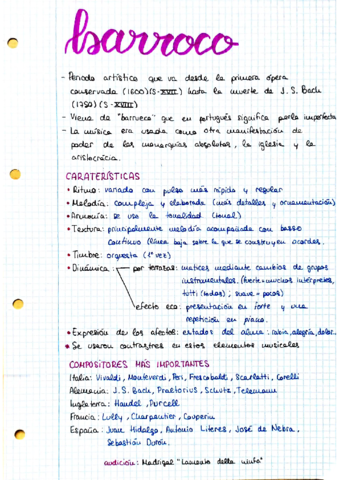 barroco
- Periodo artístico que va desde la primera ópera
conservada (1600)(S·XVII) hasta la muerte de J.S. Bach
(1750) (S·XVIII)
- Viene de "barrueca" que en portugués significa perla imperfecta
- La música era usada como otra manifestación de
poder de las monarquías absolutas, la iglesia y la
aristocracia.
CARATERÍSTICAS
• Ritmo: variado con pulso más rápido y regular
• Melodía: compleja y elaborada (más detalles y ornamentación)
• Armonía: se usa la tonalidad (tonal)
• Textura: principalmente melodía acompañada con basso
continuo (línea baja sobre la que se construyen acordes.
• Timbre: orquesta (1ª vez)
• Dinámica: por terrazas: matices mediante cambios de grupos
instrumentales. (fuerte=muchos intérpretes,
tutti (todos), suave = pocos)
efecto eco: presentación en forte y una
repetición en piano.
• Expresión de los afectos: estados del alma: rabia, alegría, dolor.
• Se usaron contrastres en estos elementos musicales
COMPOSITORES MÁS IMPORTANTES
Italia: Vivaldi, Monteverdi, Peri, Frescobaldi, Scarlatti, Corelli
Alemania: J.S. Bach, Praetorius, Schutz, Telemann
Inglaterra: Handel, Purcell
Francia: Lully, Charpentier, Couperin
España: Juan Hidalgo, Antonio Literes, José de Nebra,
Sebastián Durón.
audición: Madrigal "Lamento della ninfa"